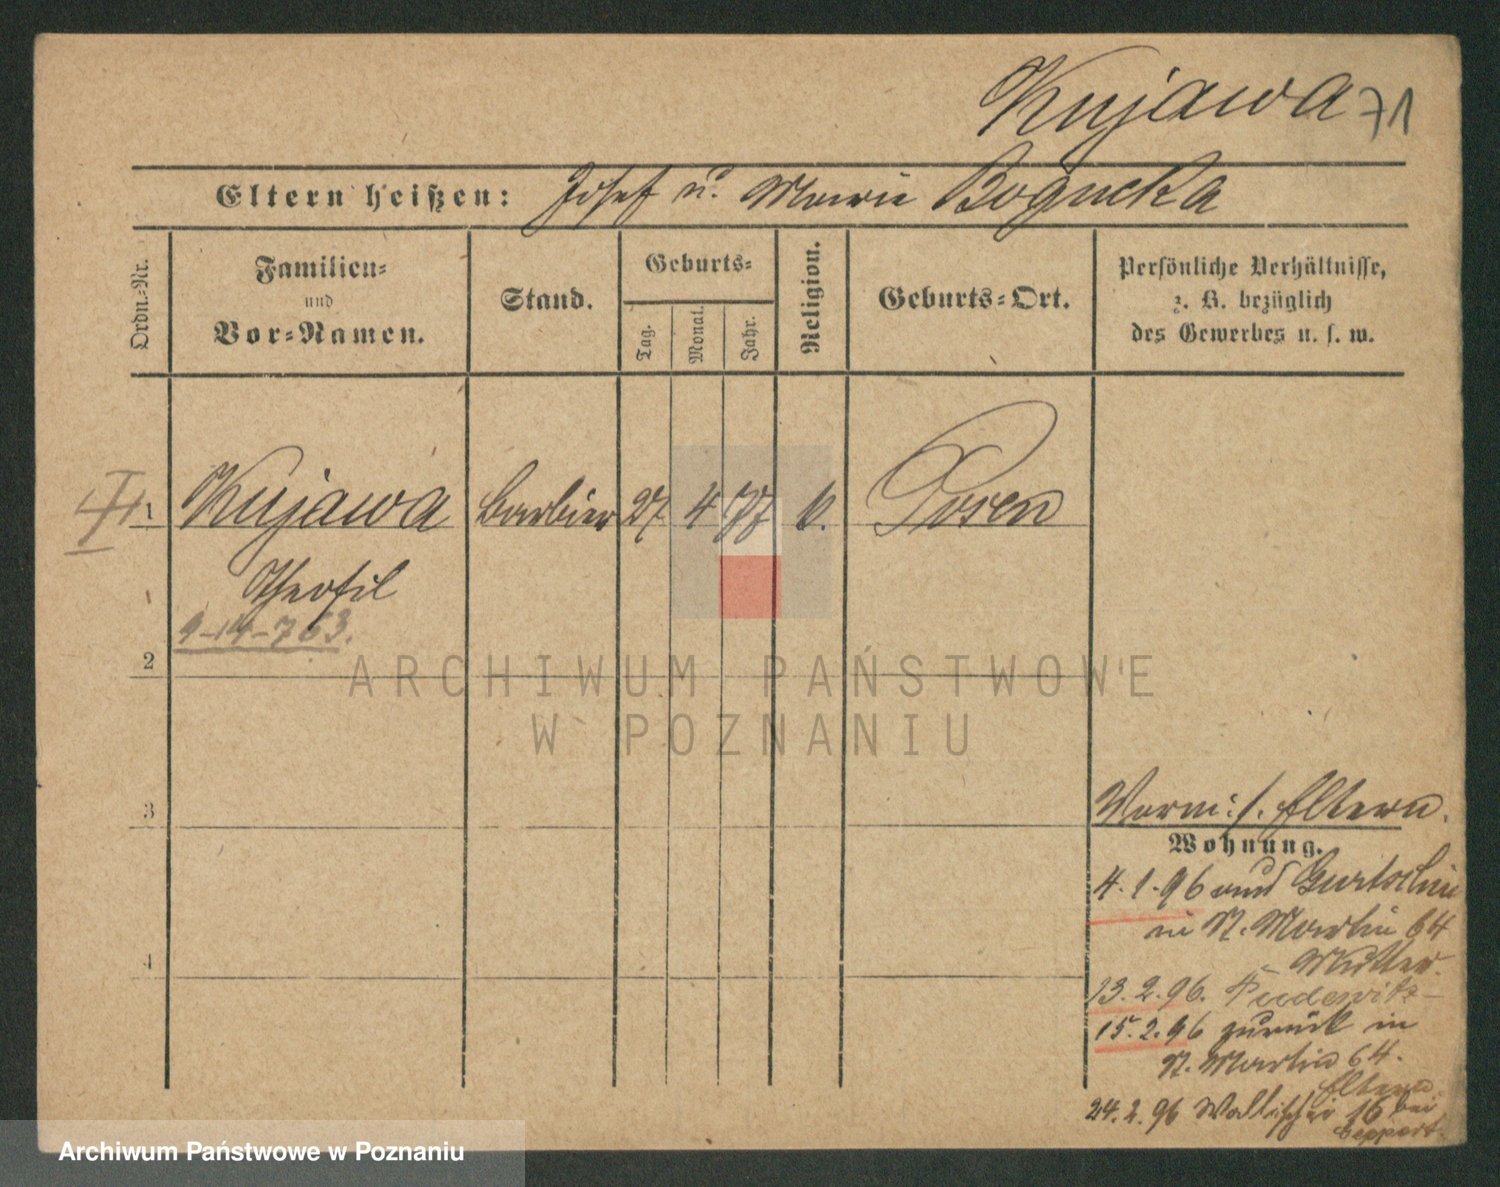 Kujawa 71
Eltern heißen: Josef u. Marie Bogucka
Ordn.-Nr.
Familien-
und
Vor-Namen.
Stand.
Geburts-
Tag.
Monat.
Jahr.
Religion.
Geburts-Ort.
Persönliche Verhältnisse,
z. B. bezüglich
des Gewerbes u. s. w.
1 Kujawa Barbier 27 4 77 k. Posen
Theofil
9-14-763.
2
ARCHIWUM PAŃSTWOWE
W POZNANIU
3
Vorm: s. Eltern.
Wohnung.
4.1.96 aus
in St. Martin 64
Mutter.
4
13.2.96. Pudewitz
15.2.96 zurück in
St. Martin 64.
Eltern
24.2.96 Wallischei 16 bei
Archiwum Państwowe w Poznaniu